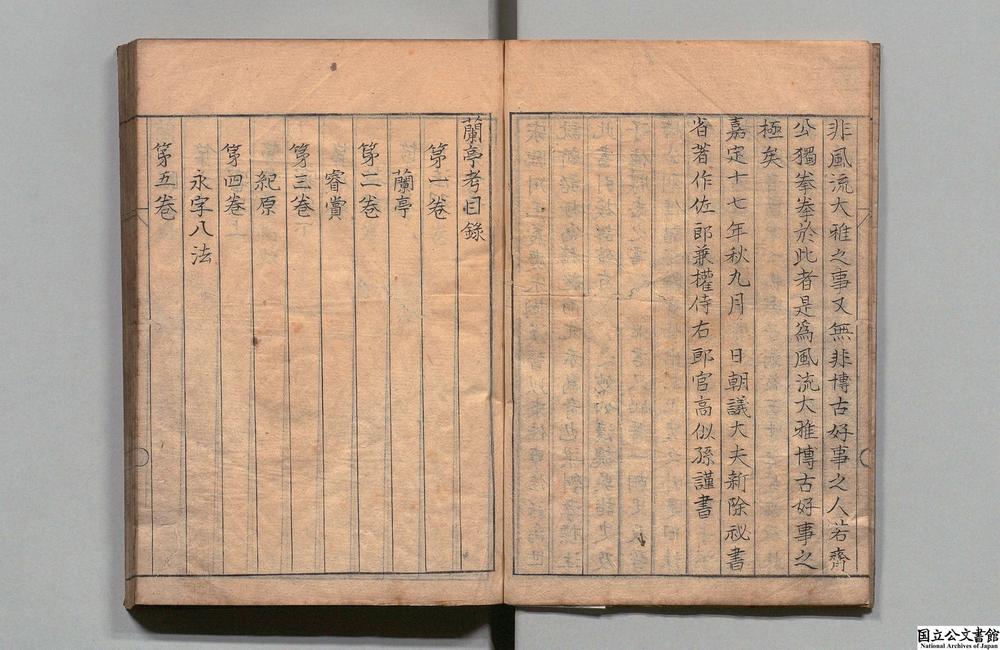 非風流大雅之事又無非博古好事之人若齋
公獨拳拳於此者是為風流大雅博古好事之
極矣
嘉定十七年秋九月　日朝議大夫新除祕書
省著作佐郎兼權侍右郎官高似孫謹書
蘭亭考目錄
第一卷
蘭亭
第二卷
睿賞
第三卷
紀原
第四卷
永字八法
第五卷
国立公文書館
National Archives of Japan